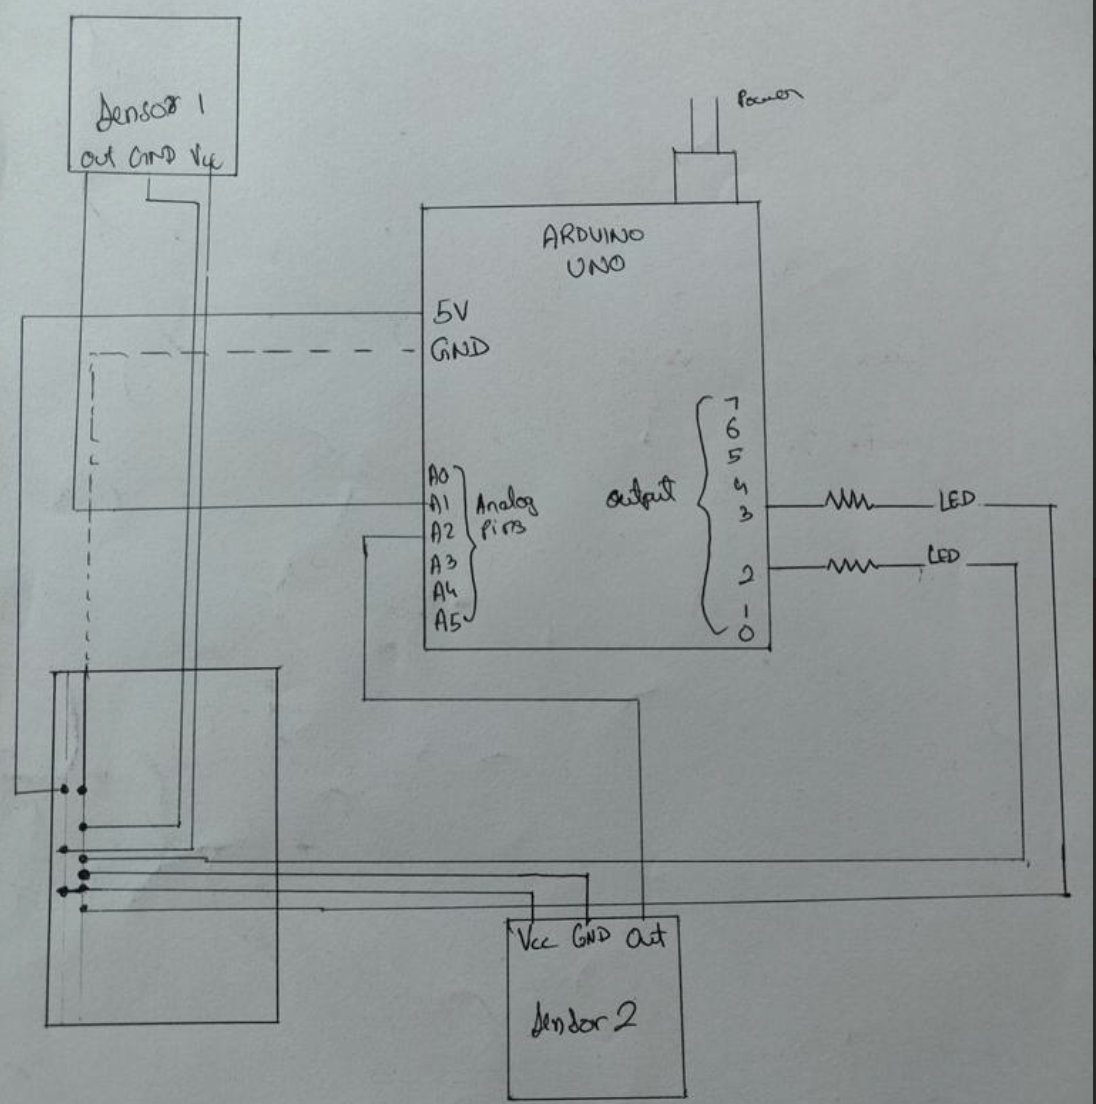 Sensor 1
Out GND Vcc
Power
ARDUINO
UNO
5V
GND
A0
A1
A2
A3
A4
A5
Analog
Pins
output
7
6
5
4
3
2
1
0
LED
LED
Vcc GND Out
Sensor 2